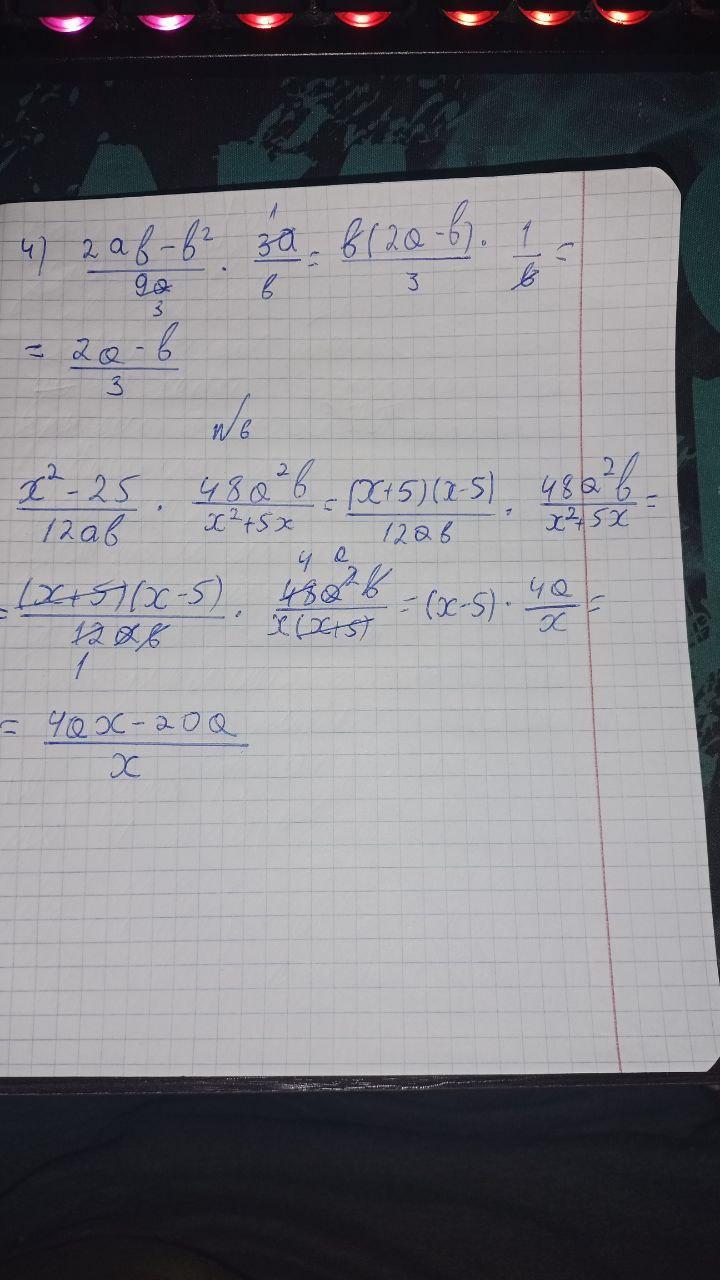 4) (2ab - b²)/(9a) · (3a)/b = (b(2a - b))/3 · 1/b =
3 1
= (2a - b)/3
№6
(x² - 25)/(12ab) · (48a²b)/(x² + 5x) = ((x+5)(x-5))/(12ab) · (48a²b)/(x² + 5x) =
= ((x+5)(x-5))/(12ab) · (48a²b)/(x(x+5)) = (x-5) · (4a)/x =
1 4 a
= (4ax - 20a)/x